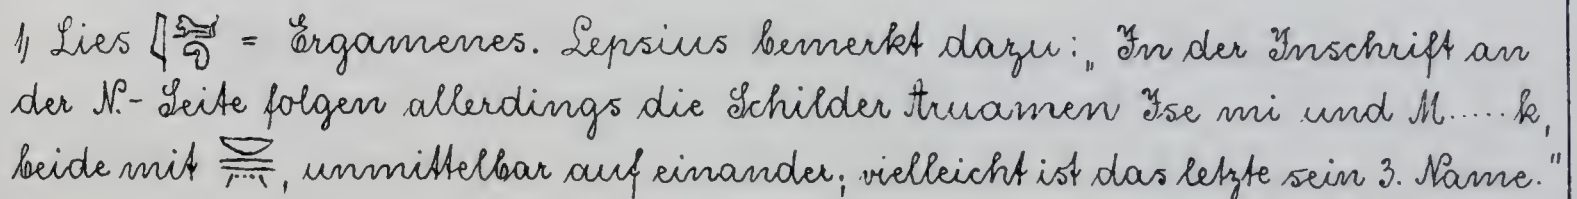 1) Lies = Ergamenes. Lepsius bemerkt dazu: „In der Inschrift an
der N.- Seite folgen allerdings die Schilder Aruamen Ise mi und M.....k,
beide mit , unmittelbar auf einander; vielleicht ist das letzte sein 3. Name."